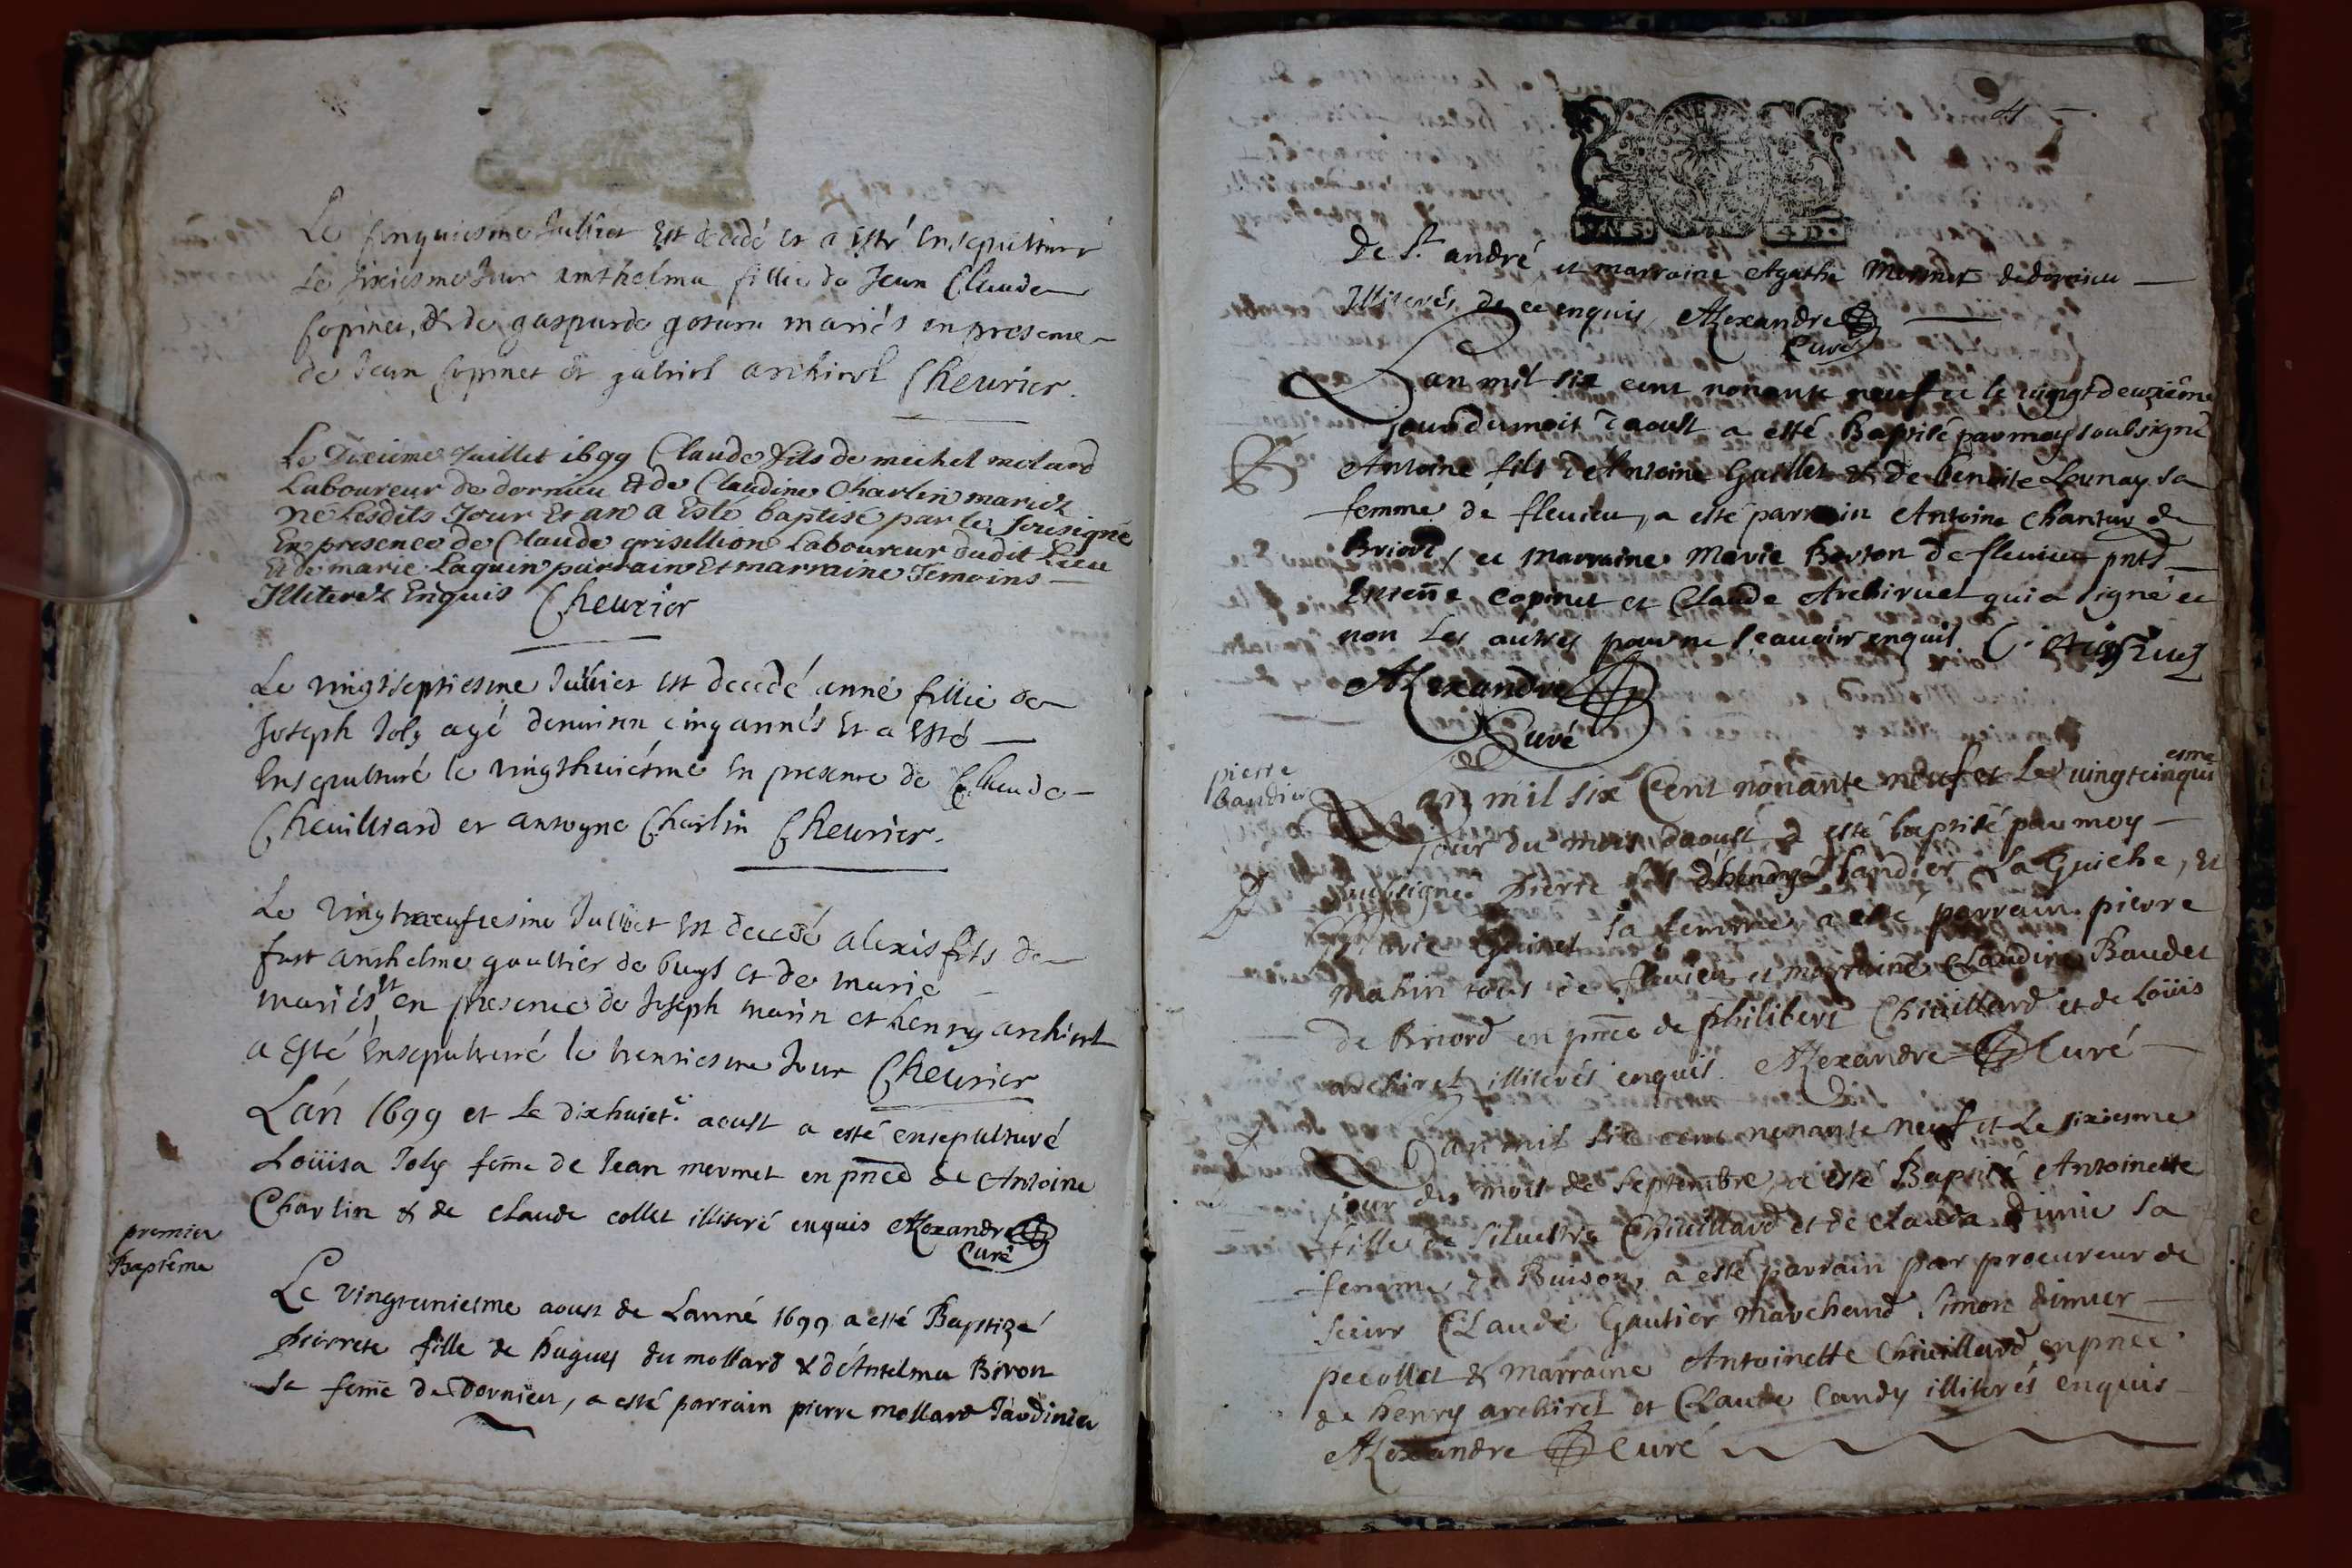 Le sinquiesme Julliet Est décédé et a Esté Ensepulturé
Le sixiesme Jour anthelma fillie de Jean Claude
Copinet, & de gasparde mariés en presence
de Jean Copinet et gabriel archirel Cheurier.
Le Dixieme Juillet 1699 Claude fils de michel molard
Laboureur de dornieu & de Claudine Charlin mariez
né Lesdits Jour Et an a Esté baptisé par le sousigné
En presence de Claude grisillion Laboureur dudit Lieu
Et de marie Laquin parrain Et marraine Temoins
Illiterez Enquis Cheurier
Le vingtseptiesme Julliet est decedé anné fillie de
Joseph Joly agé denviron cinq annés Et a Esté
Ensepulturé le vingthuiésme En presence de Claude
Cheuilliard et antoyne Charlin Cheurier.
Le vingtneufiesme Julliet Est decedé alexis fils de
fust anthelme gaultier de buys et de marie
mariés et en presence de Joseph marin et henry archirel
a Esté Ensepulturé le trentiesme Jour Cheurier
Lán 1699 et Le dixhuiet.e aoust a esté ensepulturé
Loüisa Joly feme de Jean mermet en pnce de Antoine
Charlin & de claude collet illiteré enquis Alexandre
Curé
premier
Baptême
Le vingtuniesme aoust de Lanné 1699 a esté Baptizé
pierrete fille de hugues du mollard & d'Antelma Biron
sa feme de Dornieu, a esté parrain pierre mollard Jardinier
4
De St. andré, et marraine Agathe Mermet de dornieu
Illiterés de ce enquis Alexandre
Curé
Lan mil six cent nonante neuf et le vingtdeuziême
jour du mois d'aoust a esté Baptisé par moy soubsigné
B Antoine fils d'Antoine Guillet & de benoite Lounay sa
femme de fleurieu, a esté parrain Antoine Chantur de
Briord, et marraine Marie Berton de fleurieu pnts
Estienne Copinet et Claude Archiruel qui a signé et
non Les autres pour ne sçauoir enquis C. Archirel
Alexandre
Curé
pierre
bandier
Lan mil six Cent nonante neuf et Le vingtcinqui
esme
jour du mois daoust a esté baptisé par moy
B soubsigné pierre fils d'hendry bandier La Guiche, Et
Marie Guinet sa femme, a esté parrain pierre
Mahin tous de fleurieu et marraine Claudine Baudet
de Briord en pnce de philibert Chiuillard et de Loüis
archirel illiterés enquis. Alexandre Curé
Lan mil six cent nonante neuf et Le sixiesme
jour du mois de Septembre, a esté Baptisé Antoinette
fille de Siluestre Chiuillard et de Clauda Dimie sa
femme de Buison, a esté parrain par procureur de
sieur Claude Gautier Marchand Simon dimier
pecollet & Marraine Antoinette Chiuillard en pnce
de henry archirel et Claude Candy illiterés enquis
Alexandre Curé